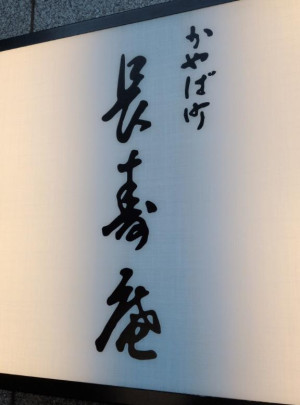 かやば町
長寿庵